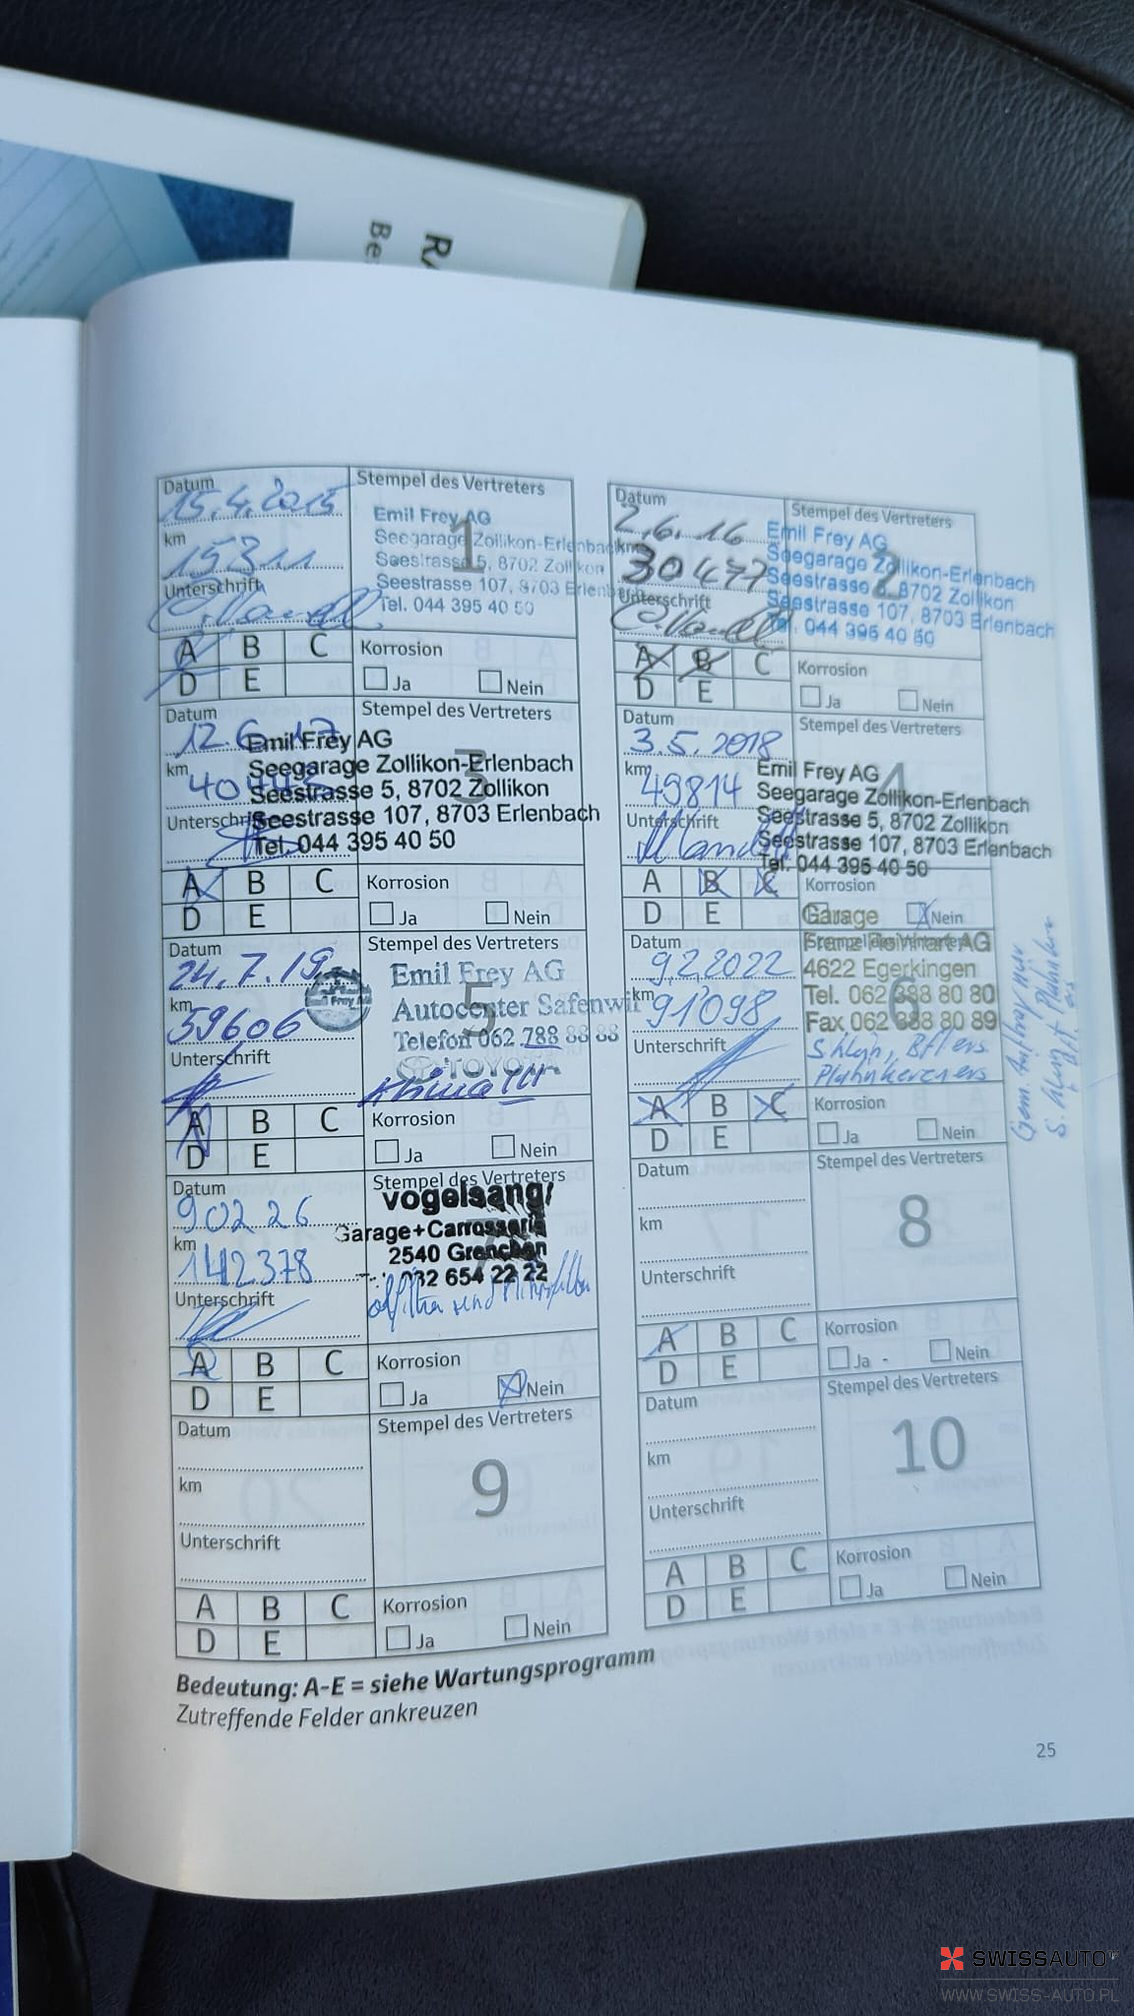 Datum
15.4.2015
km
15311
Unterschrift
Stempel des Vertreters
Emil Frey AG
Seegarage Zollikon-Erlenbach
Seestrasse 5, 8702 Zollikon
Seestrasse 107, 8703 Erlenbach
Tel. 044 395 40 50
1
A B C
D E
Korrosion
Ja Nein
Datum
2.6.16
km
30477
Unterschrift
Stempel des Vertreters
Emil Frey AG
Seegarage Zollikon-Erlenbach
Seestrasse 5, 8702 Zollikon
Seestrasse 107, 8703 Erlenbach
Tel. 044 395 40 50
2
A B C
D E
Korrosion
Ja Nein
Datum
12.6.17
km
Unterschrift
Stempel des Vertreters
Emil Frey AG
Seegarage Zollikon-Erlenbach
Seestrasse 5, 8702 Zollikon
Seestrasse 107, 8703 Erlenbach
Tel. 044 395 40 50
3
A B C
D E
Korrosion
Ja Nein
Datum
3.5.2018
km
49814
Unterschrift
Stempel des Vertreters
Emil Frey AG
Seegarage Zollikon-Erlenbach
Seestrasse 5, 8702 Zollikon
Seestrasse 107, 8703 Erlenbach
Tel. 044 395 40 50
4
A B C
D E
Korrosion
Ja Nein
Datum
24.7.19
km
59606
Unterschrift
Stempel des Vertreters
Emil Frey AG
Autocenter Safenwil
Telefon 062 788 88 88
TOYOTA
Klima
5
A B C
D E
Korrosion
Ja Nein
Datum
9.2.2022
km
91'098
Unterschrift
Stempel des Vertreters
Garage
AG
4622 Egerkingen
Tel. 062 388 80 80
Fax 062 388 80 89
6
A B C
D E
Korrosion
Ja Nein
Datum
90226
km
142378
Unterschrift
Stempel des Vertreters
vogelsang
Garage+Carrosserie
2540 Grenchen
032 654 22 22
A B C
D E
Korrosion
Ja Nein
Datum
km
Unterschrift
Stempel des Vertreters
8
A B C
D E
Korrosion
Ja Nein
Datum
km
Unterschrift
Stempel des Vertreters
9
A B C
D E
Korrosion
Ja Nein
Datum
km
Unterschrift
Stempel des Vertreters
10
A B C
D E
Korrosion
Ja Nein
Bedeutung: A-E = siehe Wartungsprogramm
Zutreffende Felder ankreuzen
25
SWISSAUTO
WWW.SWISS-AUTO.PL